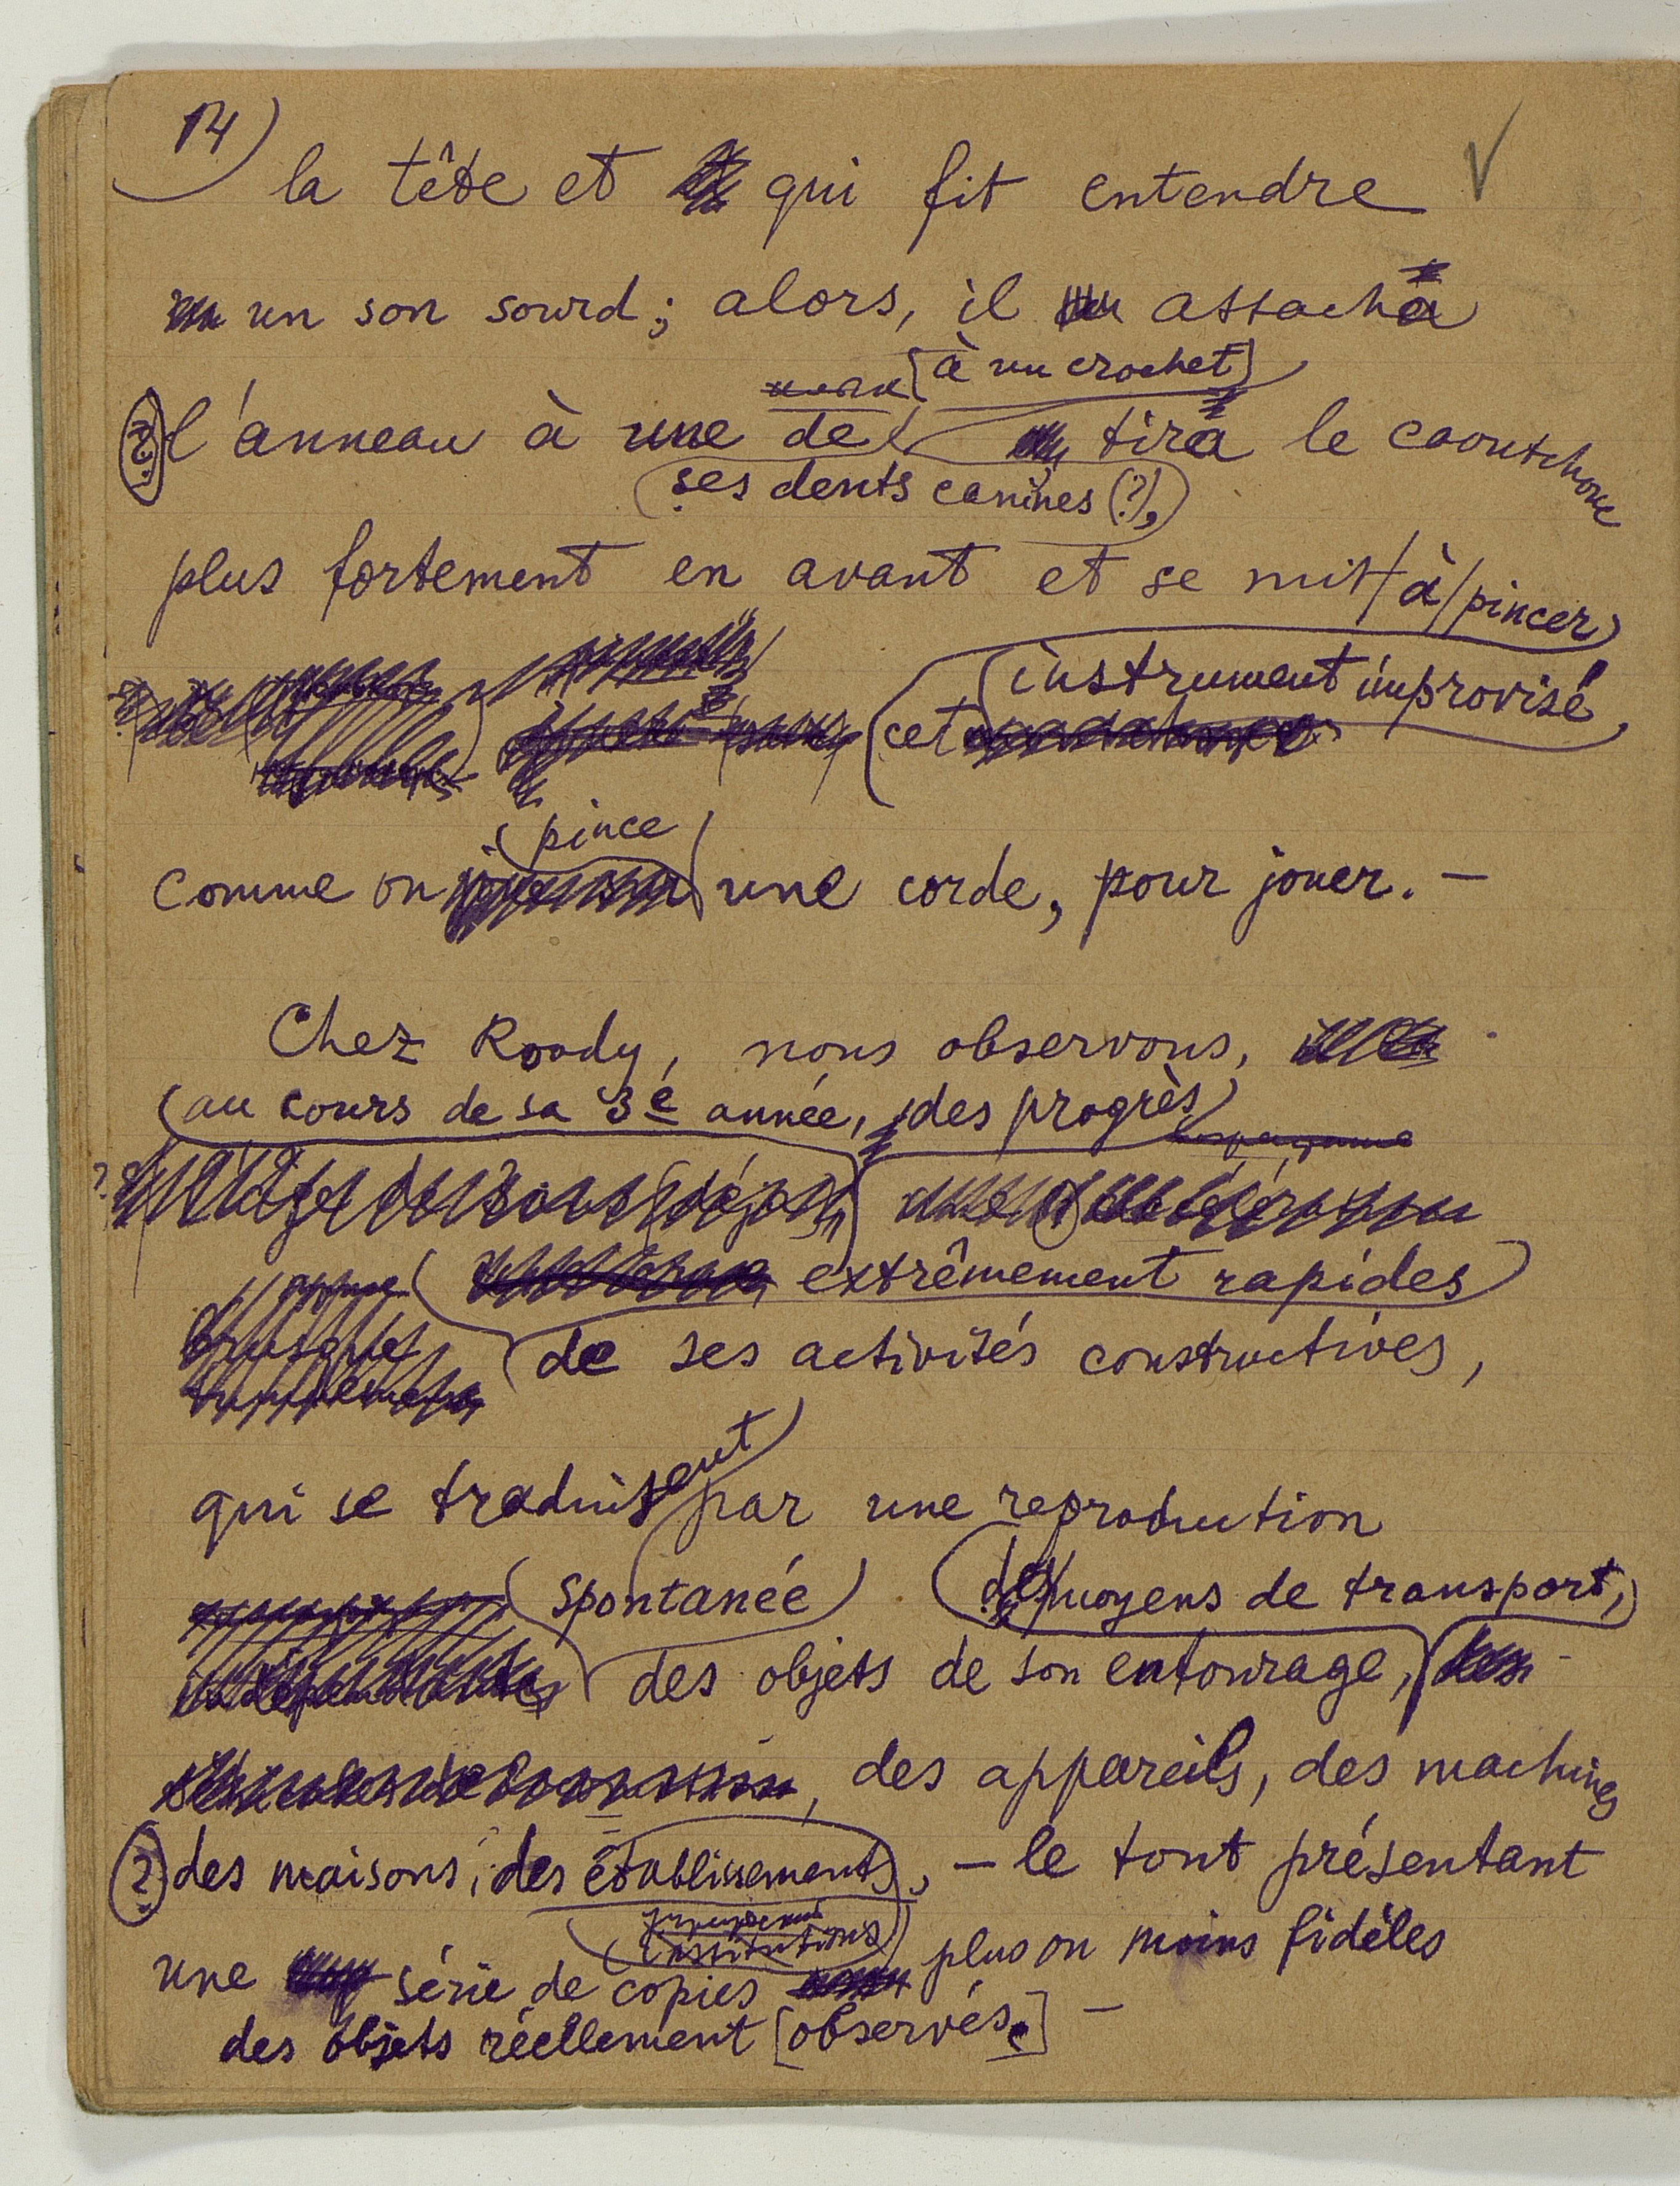 14)
la tête et qui fit entendre
un son sourd; alors, il attacha
[à un crochet]
(?) l'anneau à une de tira le caoutchouc
ses dents canines (?),
plus fortement en avant et se mit/à/pincer
instrument improvisé,
cet
pince
comme on une corde, pour jouer. —
Chez Roody, nous observons,
au cours de sa 3e année, des progrès
extrêmement rapides
de ses activités constructives,
qui se traduisent par une reproduction
spontanée des moyens de transport,
des objets de son entourage,
, des appareils, des machines
(?) des maisons, des établissements, — le tout présentant
institutions
une série de copies plus ou moins fidèles
des objets réellement [observés.] —